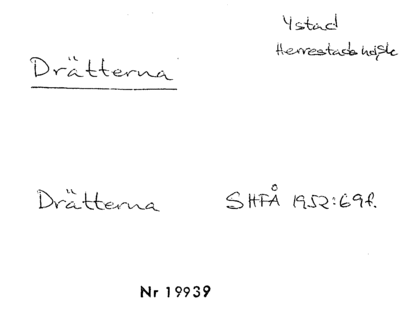 Ystad
Herrestads hd, Sk
Drätterna
Drätterna SHFÅ 1952:69f.
Nr 19939